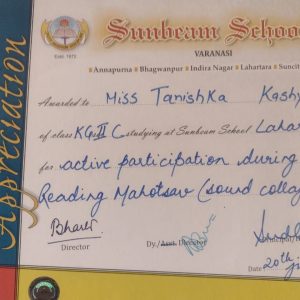 Appreciation
Sunbeam School
Estd. 1972
VARANASI
Annapurna Bhagwanpur Indira Nagar Lahartara Suncity
Awarded to Miss Tanishka Kashy
of class KG II C studying at Sunbeam School Lahar
for active participation during
Reading Mahotsav (sound colla
Director Dy./Asst. Director Principal/
Date 20th